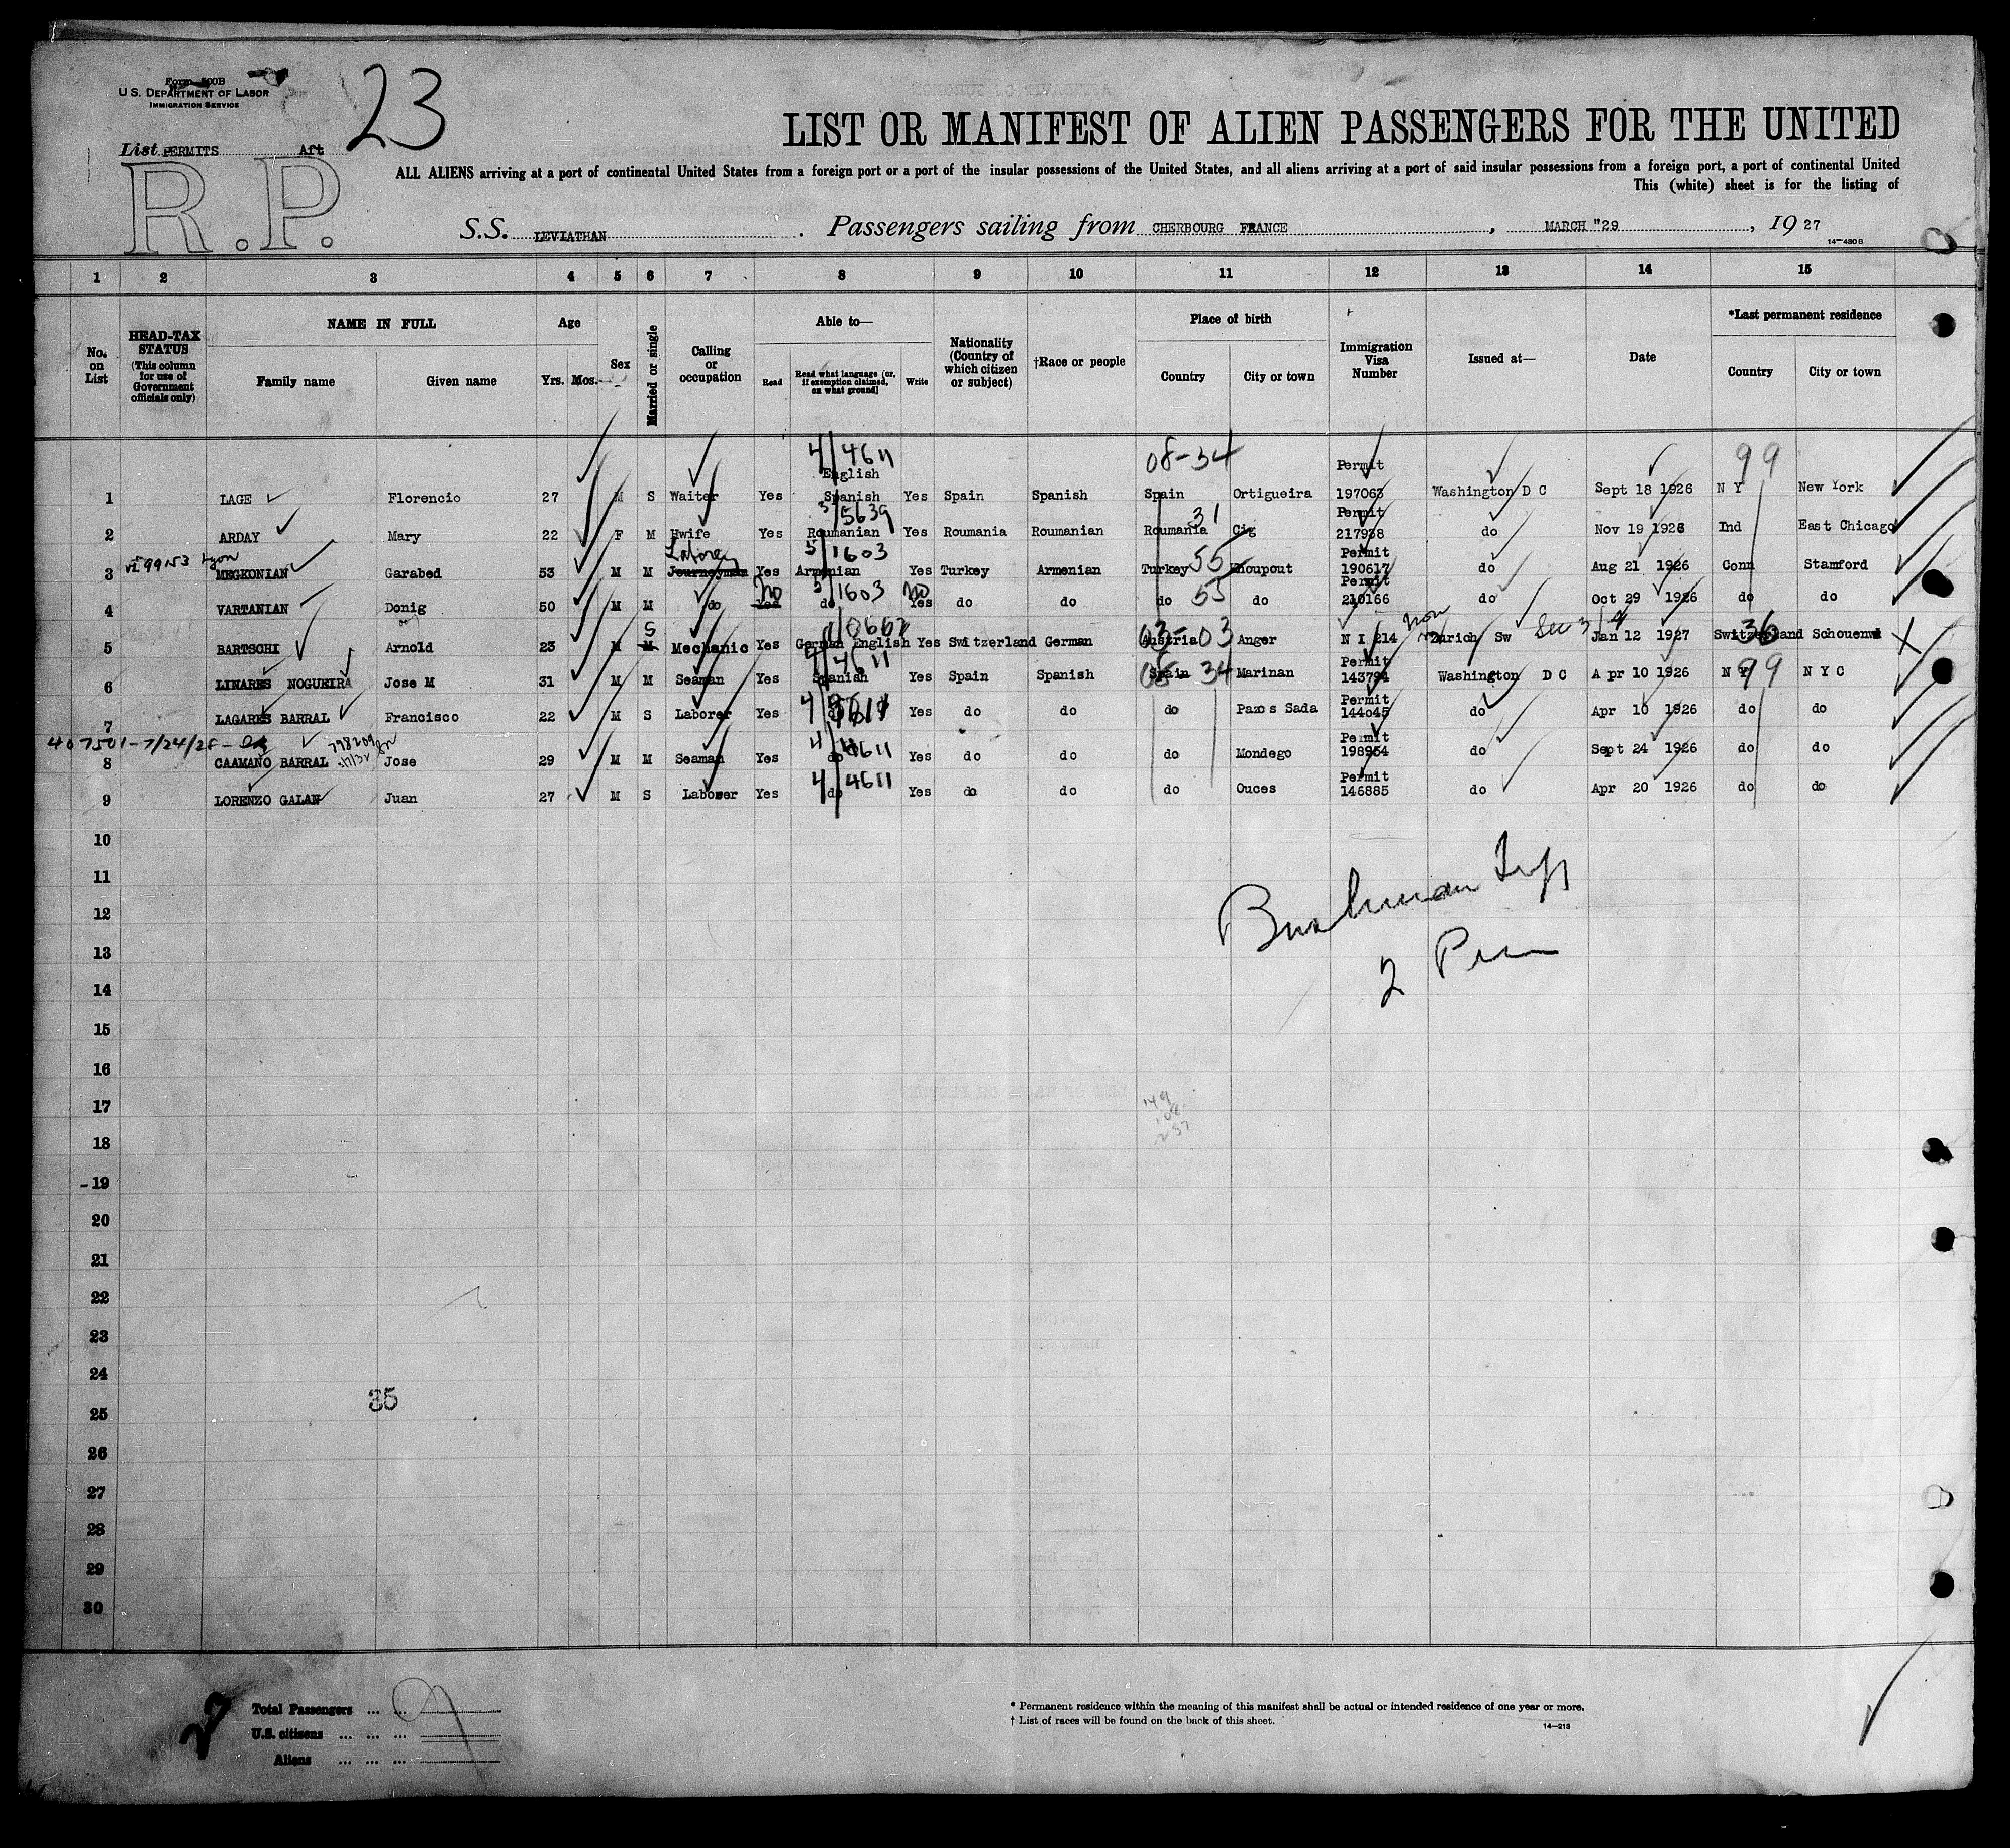 Form 500B
U.S. DEPARTMENT OF LABOR
IMMIGRATION SERVICE
23
List PERMITS Aft
R.P.
LIST OR MANIFEST OF ALIEN PASSENGERS FOR THE UNITED
ALL ALIENS arriving at a port of continental United States from a foreign port or a port of the insular possessions of the United States, and all aliens arriving at a port of said insular possessions from a foreign port, a port of continental United
This (white) sheet is for the listing of
S.S. LEVIATHAN. Passengers sailing from CHERBOURG FRANCE, MARCH "29, 1927
14—430 B
1 2 3 4 5 6 7 8 9 10 11 12 13 14 15
No. on List
HEAD-TAX STATUS (This column for use of Government officials only)
NAME IN FULL
Family name Given name
Age
Yrs. Mos.
Sex
Married or single
Calling or occupation
Able to—
Read Read what language (or, if exemption claimed, on what ground) Write
Nationality (Country of which citizen or subject)
†Race or people
Place of birth
Country City or town
Immigration Visa Number
Issued at—
Date
*Last permanent residence
Country City or town
4/4611 08-34 99
English Permit
1 LAGE Florencio 27 M S Waiter Yes Spanish Yes Spain Spanish Spain Ortigueira 197063 Washington D C Sept 18 1926 N Y New York
5/5639 31 Permit
2 ARDAY Mary 22 F M Hwife Yes Roumanian Yes Roumania Roumanian Roumania Cig 217938 do Nov 19 1926 Ind East Chicago
Laborer 5/1603 55 Permit
3 MEGKONIAN Garabed 53 M M Journeyman Yes Armenian Yes Turkey Armenian Turkey Khoupout 190617 do Aug 21 1926 Conn Stamford
No 5/1603 No 55 Permit
4 VARTANIAN Donig 50 M M do Yes do Yes do do do do 210166 do Oct 29 1926 do do
S 03-03 non 36
5 BARTSCHI Arnold 23 M M Mechanic Yes German English Yes Switzerland German Austria Anger N I 214 Zurich Sw Sec 3/4 Jan 12 1927 Switzerland Schouenwd
4/4611 08-34 Permit 99
6 LINARES NOGUEIRA Jose M 31 M M Seaman Yes Spanish Yes Spain Spanish Spain Marinan 143794 Washington D C Apr 10 1926 N Y N Y C
Permit
7 LAGARES BARRAL Francisco 22 M S Laborer Yes do Yes do do do Pazos Sada 144045 do Apr 10 1926 do do
407501-7/24/28 798209 4/4611 Permit
8 CAAMANO BARRAL Jose 29 M M Seaman Yes do Yes do do do Mondego 198954 do Sept 24 1926 do do
4/4611 Permit
9 LORENZO GALAN Juan 27 M S Laborer Yes do Yes do do do Ouces 146885 do Apr 20 1926 do do
10
11
12
13
2
14
15
16
17
18
19
20
21
22
23
24
35
25
26
27
28
29
30
Total Passengers ... ...
U.S. citizens ... ... ...
Aliens ... ... ...
* Permanent residence within the meaning of this manifest shall be actual or intended residence of one year or more.
† List of races will be found on the back of this sheet.
14—213